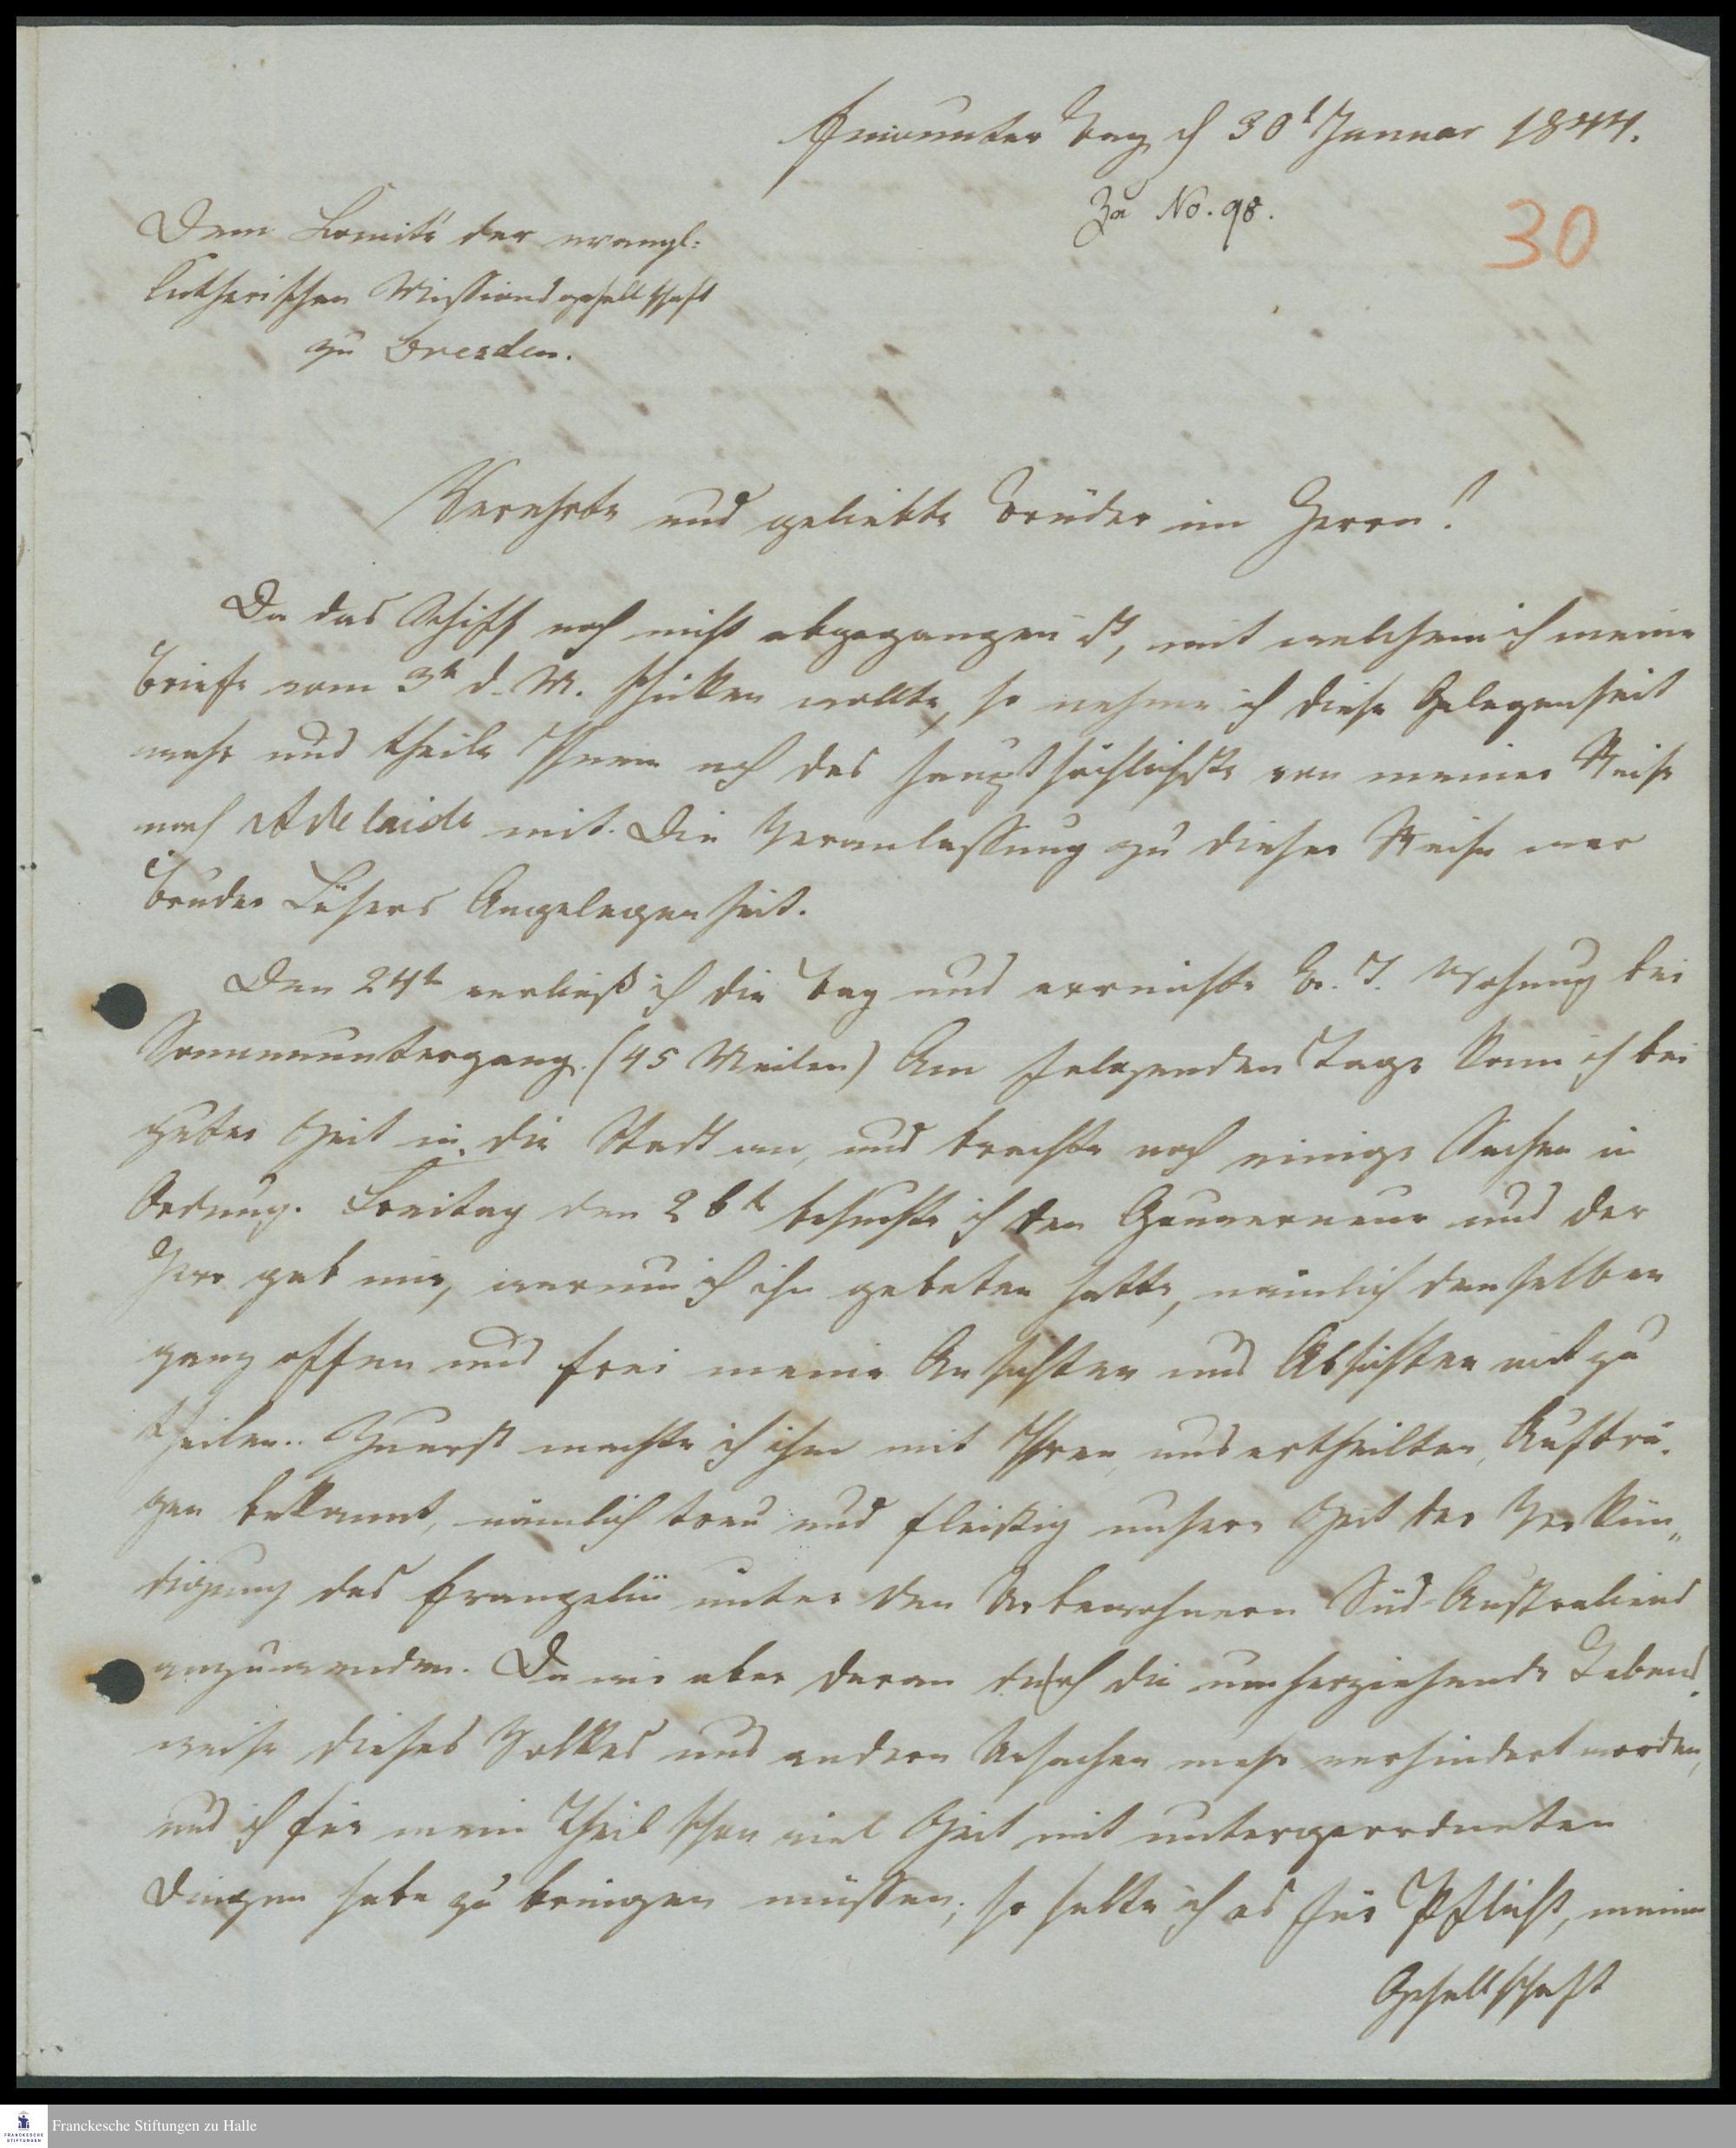 Encounter Bay d 30t Januar 1844.
Zu No. 98.
30
Dem Comité der evangl:
lutherischen Missionsgesellschaft
zu Dresden.
Verehrte und geliebte Brüder im Herrn!
Da das Schiff noch nicht abgegangen ist, mit welchem ich meine
Briefe vom 3t d. M. schicken wollte, so nehme ich diese Gelegenheit
wahr und theile Ihnen noch das hauptsächlichste von meiner Reise
nach Adelaide mit. Die Veranlassung zu dieser Reise war
Bruder Angelegenheit.
Den 24t verließ ich die Bay und erreichte Br. T. Wohnung bei
Sonnenuntergang. (45 Meilen) Am folgenden Tage kam ich bei
guter Zeit in die Stadt an, und brachte noch einige Sachen in
Ordnung. Freitag den 26t besuchte ich den Gouverneur und der
Herr gab mir, warum ich ihn gebeten hatte, nämlich denselben
ganz offen und frei meine Ansichten und Absichten mitzu
theilen. Zuerst machte ich ihn mit Ihren, uns ertheilten, Aufträ-
gen bekannt, nämlich treu und fleißig unsere Zeit der Verkün„
digung des Evangelii unter den Urbewohnern Süd-Australiens
anzuwenden. Da wir aber daran durch die umherziehende Lebens
weise dieses Volkes und andern Ursachen mehr verhindert worden,
und ich für mein Theil schon viel Zeit mit untergeordneten
Dingen habe zu bringen müssen; so halte ich es für Pflicht, meiner
Gesellschaft
Franckesche Stiftungen zu Halle